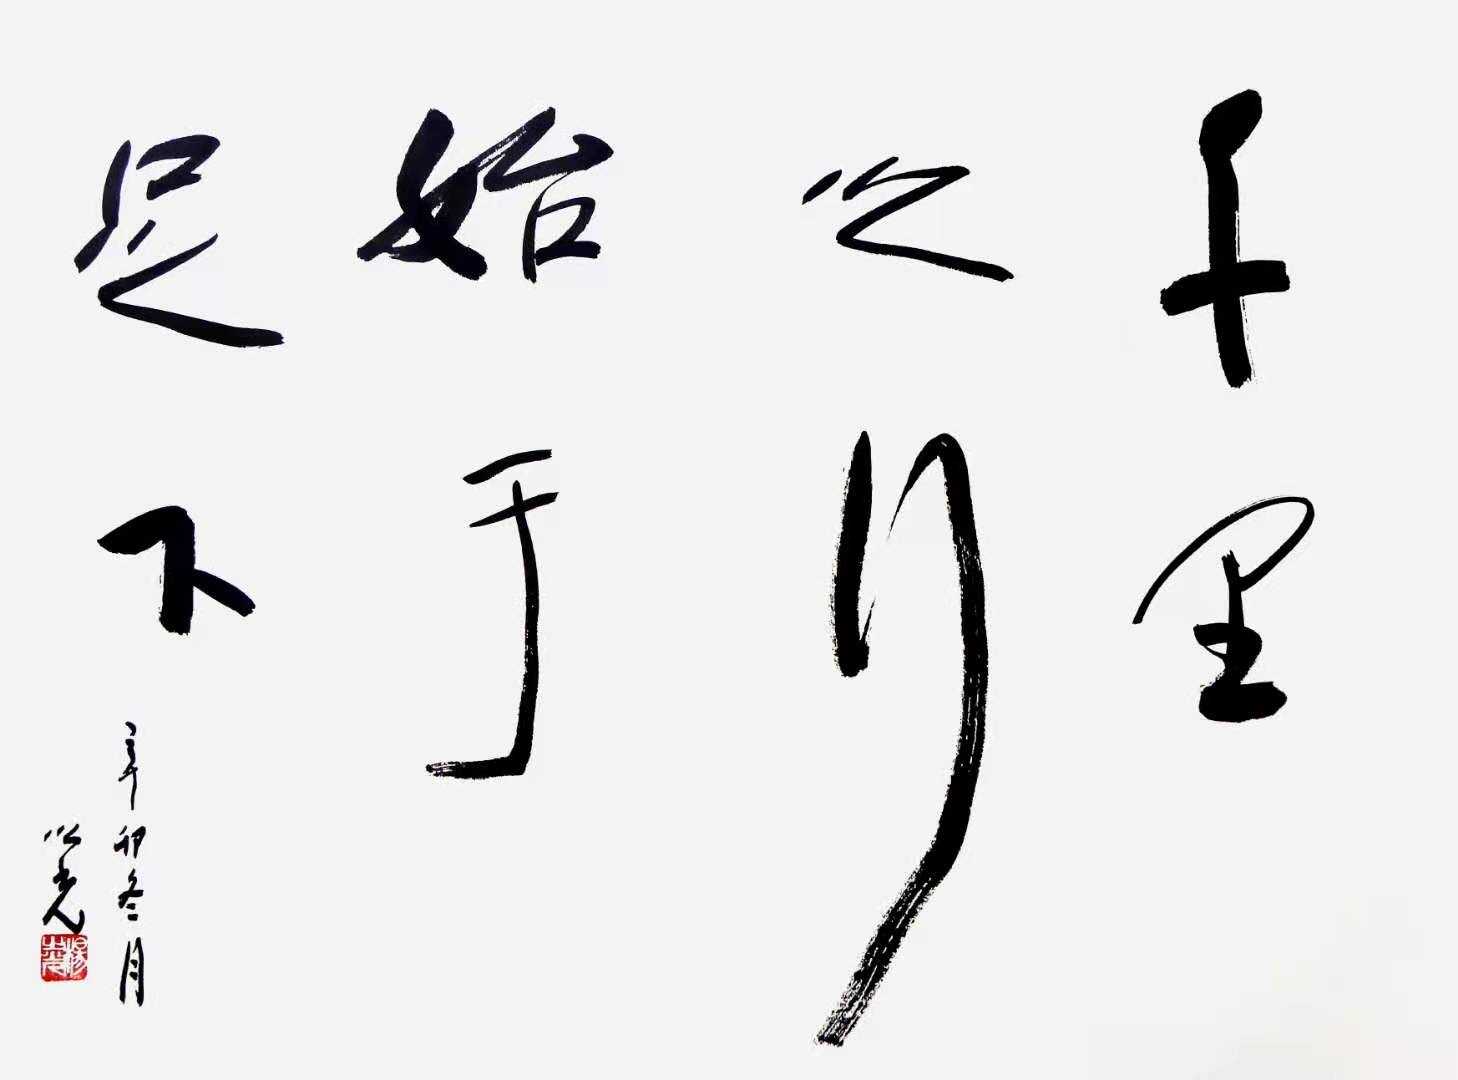 千里
之行
始于
足下
辛卯冬月